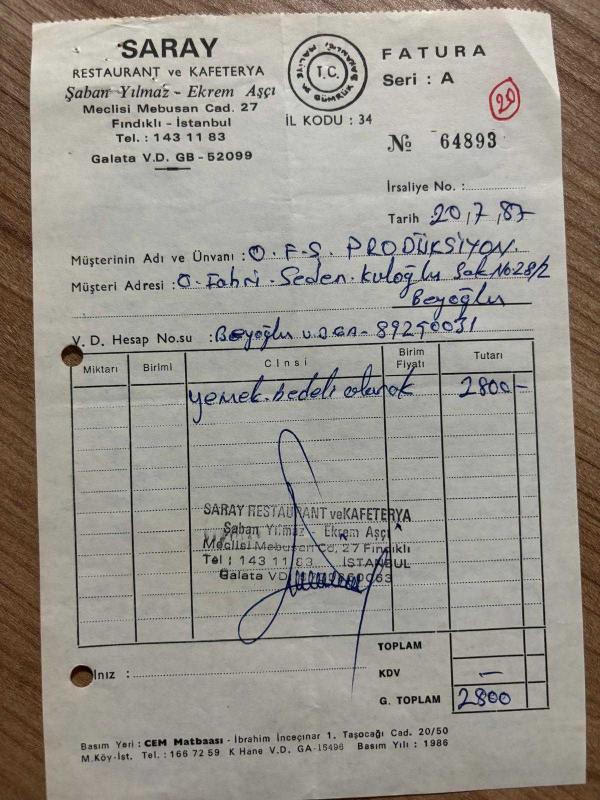 SARAY
RESTAURANT ve KAFETERYA
Şaban Yılmaz - Ekrem Aşçı
Meclisi Mebusan Cad. 27
Fındıklı - İstanbul
Tel. : 143 11 83
Galata V.D. GB - 52099
T.C.
MALİYE VE GÜMRÜK BAKANLIĞI
İL KODU : 34
FATURA
Seri : A
20
№ 64893
İrsaliye No. :
Tarih 20,7,87
Müşterinin Adı ve Ünvanı : O.F.S. PRODÜKSİYON.
Müşteri Adresi : O. Fahri. Seden. Kuloğlu Sok No:28/2
Beyoğlu
V. D. Hesap No.su : Beyoğlu 89290031
Miktarı Birimi Cinsi Birim Fiyatı Tutarı
yemek. bedeli olarak 2800-
SARAY RESTAURANT ve KAFETERYA
Şaban Yılmaz Ekrem Aşçı
Meclisi Mebusan Cd, 27 Fındıklı
Tel : 143 11 83 İSTANBUL
Galata VD.
TOPLAM
lnız :
KDV —
G. TOPLAM 2800
Basım Yeri : CEM Matbaası - İbrahim İnceçınar 1. Taşocağı Cad. 20/50
M.Köy-İst. Tel. : 166 72 59 K Hane V.D. GA-15496 Basım Yılı : 1986